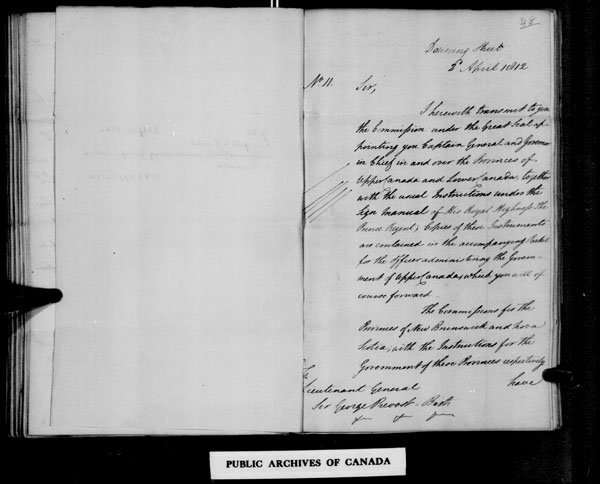 Downing Street
2d April 1812
No 11.
Sir,
I herewith transmit to you
the Commission under the Great Seal ap-
pointing you Captain General and Governor
in Chief in and over the Provinces of
Upper Canada and Lower Canada, together
with the usual Instructions under the
Sign Manual of His Royal Highness The
Prince Regent; Copies of these Instruments
are contained in the accompanying Packet
for the Officer administering the Govern-
ment of Upper Canada, which you will of
course forward
The Commissions for the
Provinces of New Brunswick and Nova
Scotia, with the Instructions for the
Government of these Provinces respectively
have
Lieutenant General
Sir George Prevost Bart
PUBLIC ARCHIVES OF CANADA